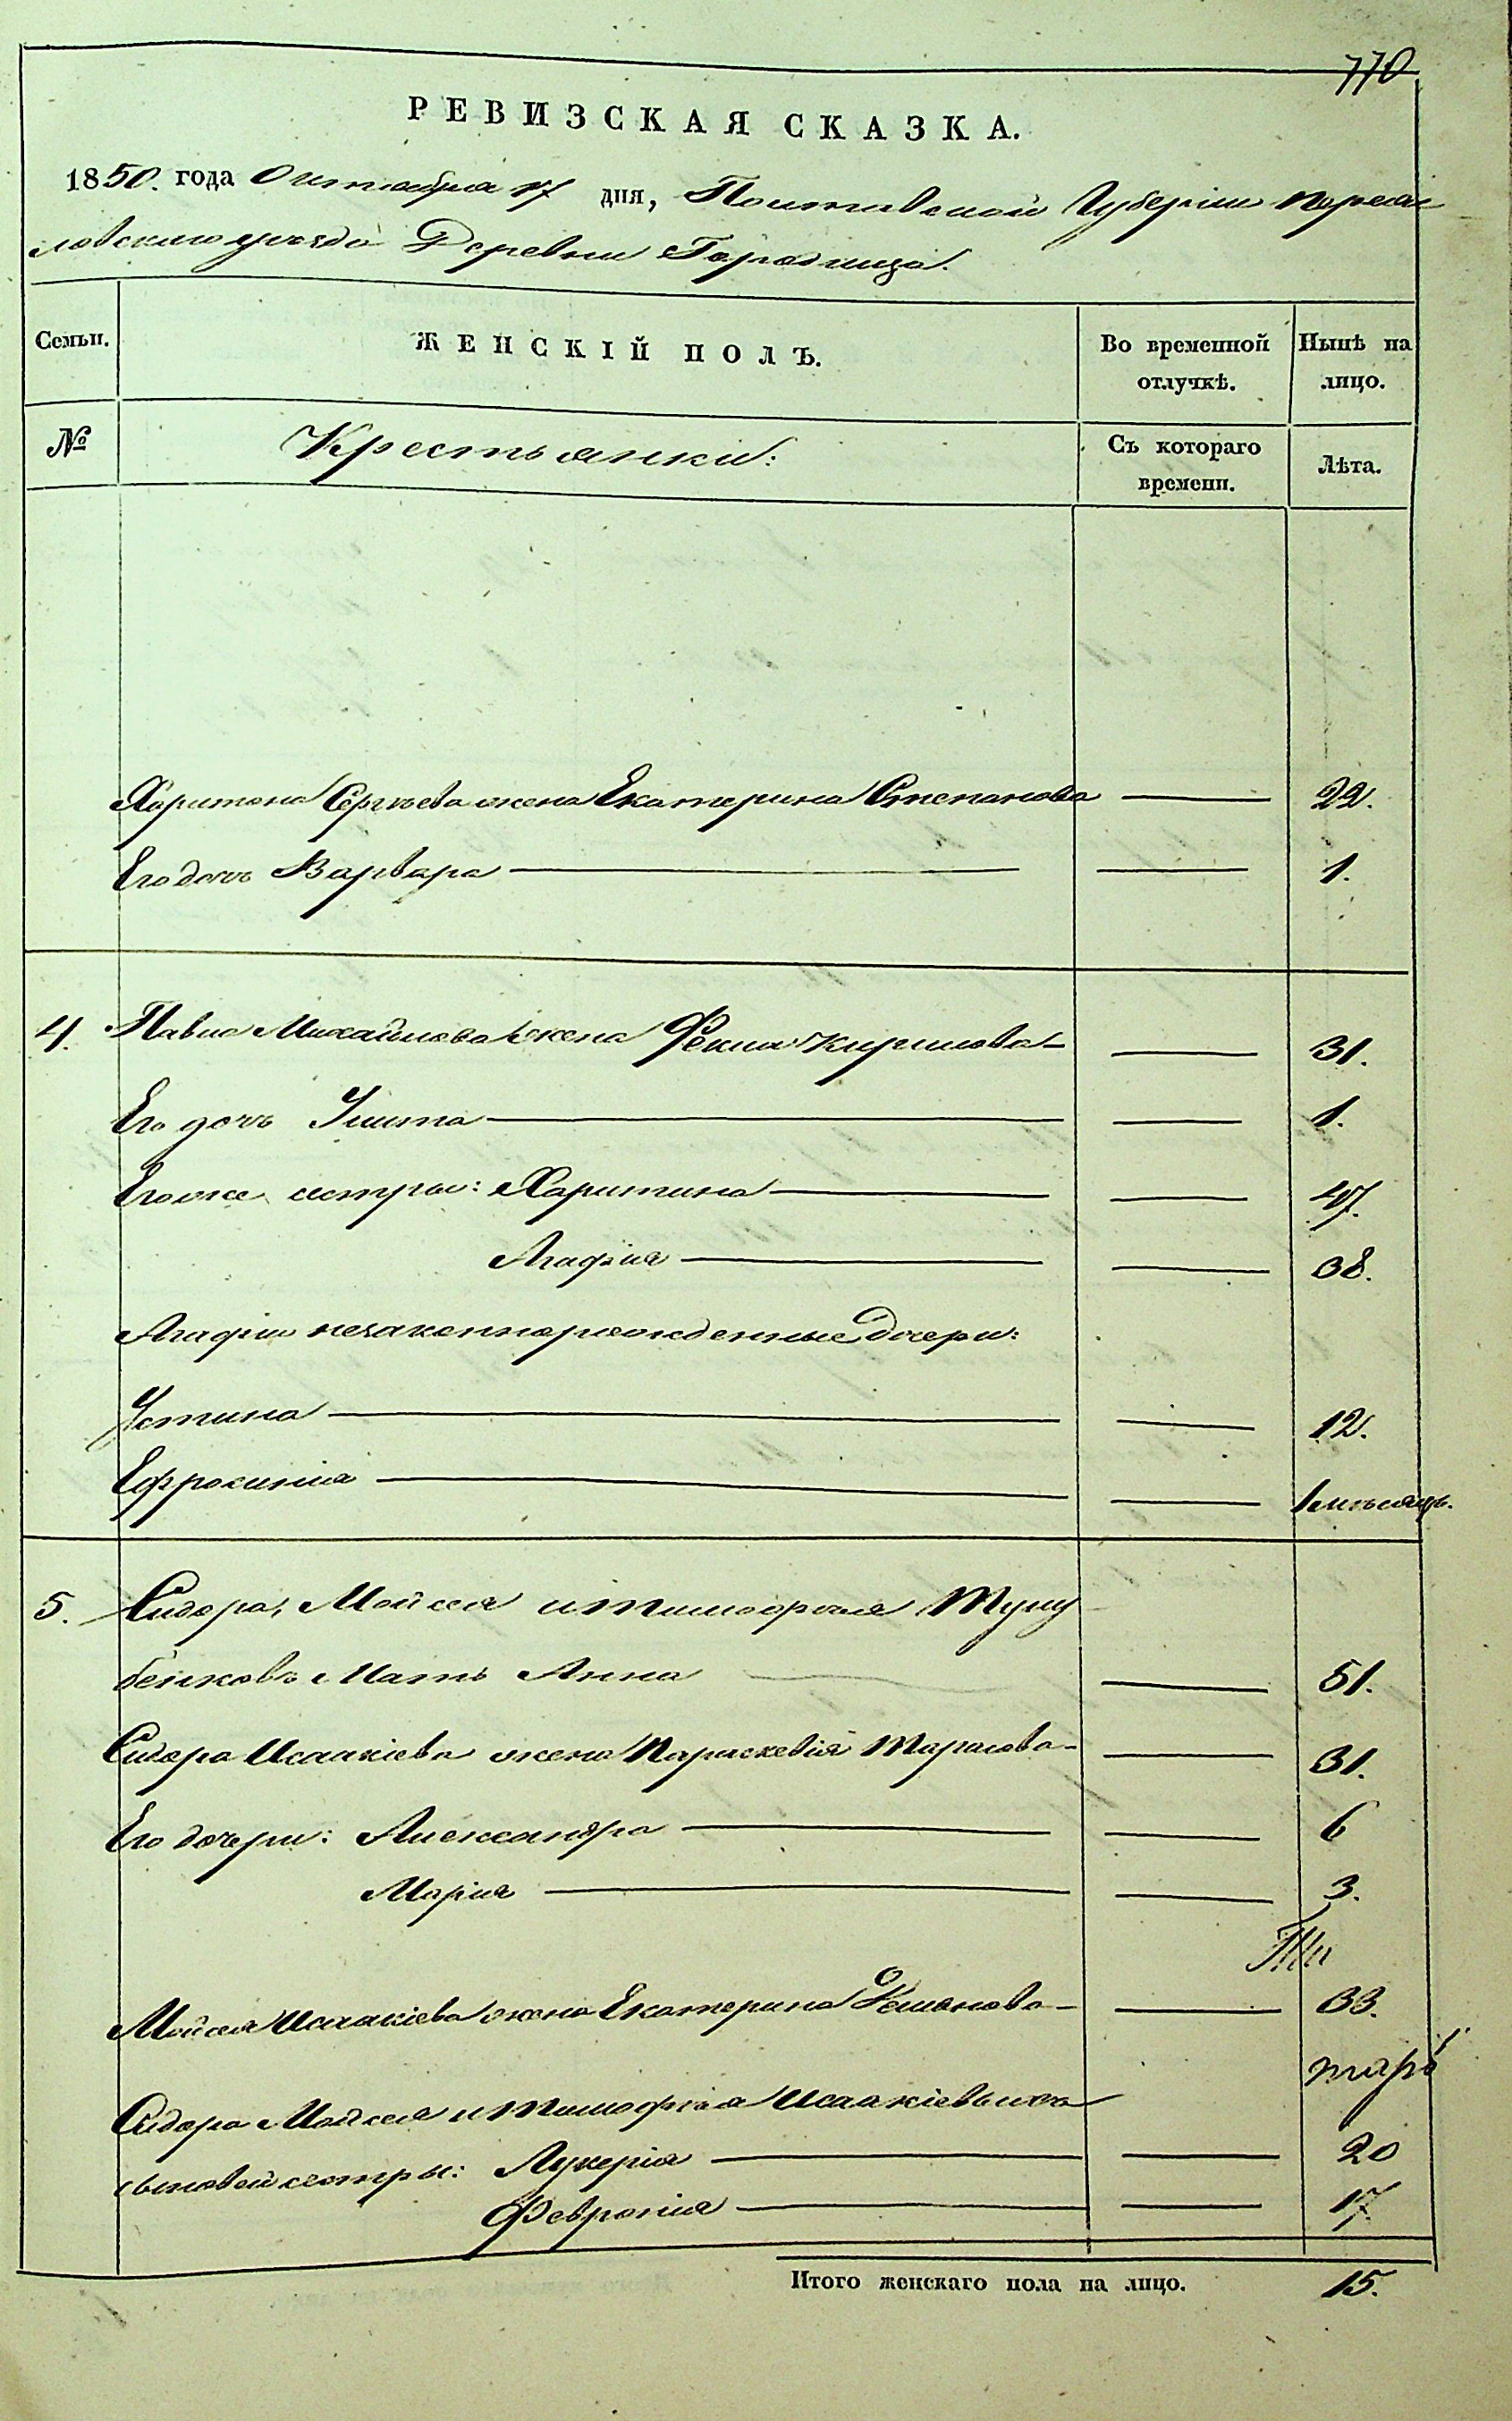 770
РЕВИЗСКАЯ СКАЗКА.
1850. года Октября 17 дня, Полтавской Губерніи Переяс
ловскаго уезда Деревни Городища.
Семьи. ЖЕНСКІЙ ПОЛЪ. Во временной отлучкѣ. Нынѣ на лицо.
№ Крестьянки: Съ котораго времени. Лѣта.
Харитона Сергѣева жена Екатерина Степанова 22.
Его дочь Варвара 1.
4. Павла Михайлова жена Фекла Кирилова 31.
Его дочь Улита 1.
Его же сестры: Харитина 47.
Агафія 38.
Агафіи незаконнорожденные дочери:
Устина 12.
Ефросинія 1 мѣсяцъ.
5. Сидора, Мойсея и Тимофѣя
Мать Анна 51.
Сидора Исаакіева жена Параскевія Тарасова 31.
Его дочери: Александра 6
Марія 3.
Мойсея Исаакіева жена Екатерина 33.
Сидора Мойсея и Тимофѣя Исаакіевыхъ
сестры: Лукерія 20
Февронія 17.
Итого женскаго пола на лицо. 15.